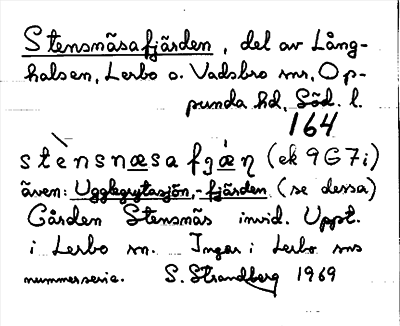 Stensnäsafjärden, del av Lång-
halsen, Lerbo o. Vadsbro snr, Op-
punda hd, Söd. l.
164
stènsnæsa fjǽṇ (ek 9G7i)
även: Ugglegrytasjön, -fjärden (se dessa)
Gården Stensnäs invid. Uppt.
i Lerbo sn. Ingår i Lerbo sns
nummerserie. S. Strandberg 1969